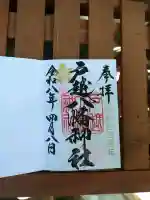 奉拝
戸越八幡神社
令和八年四月八日